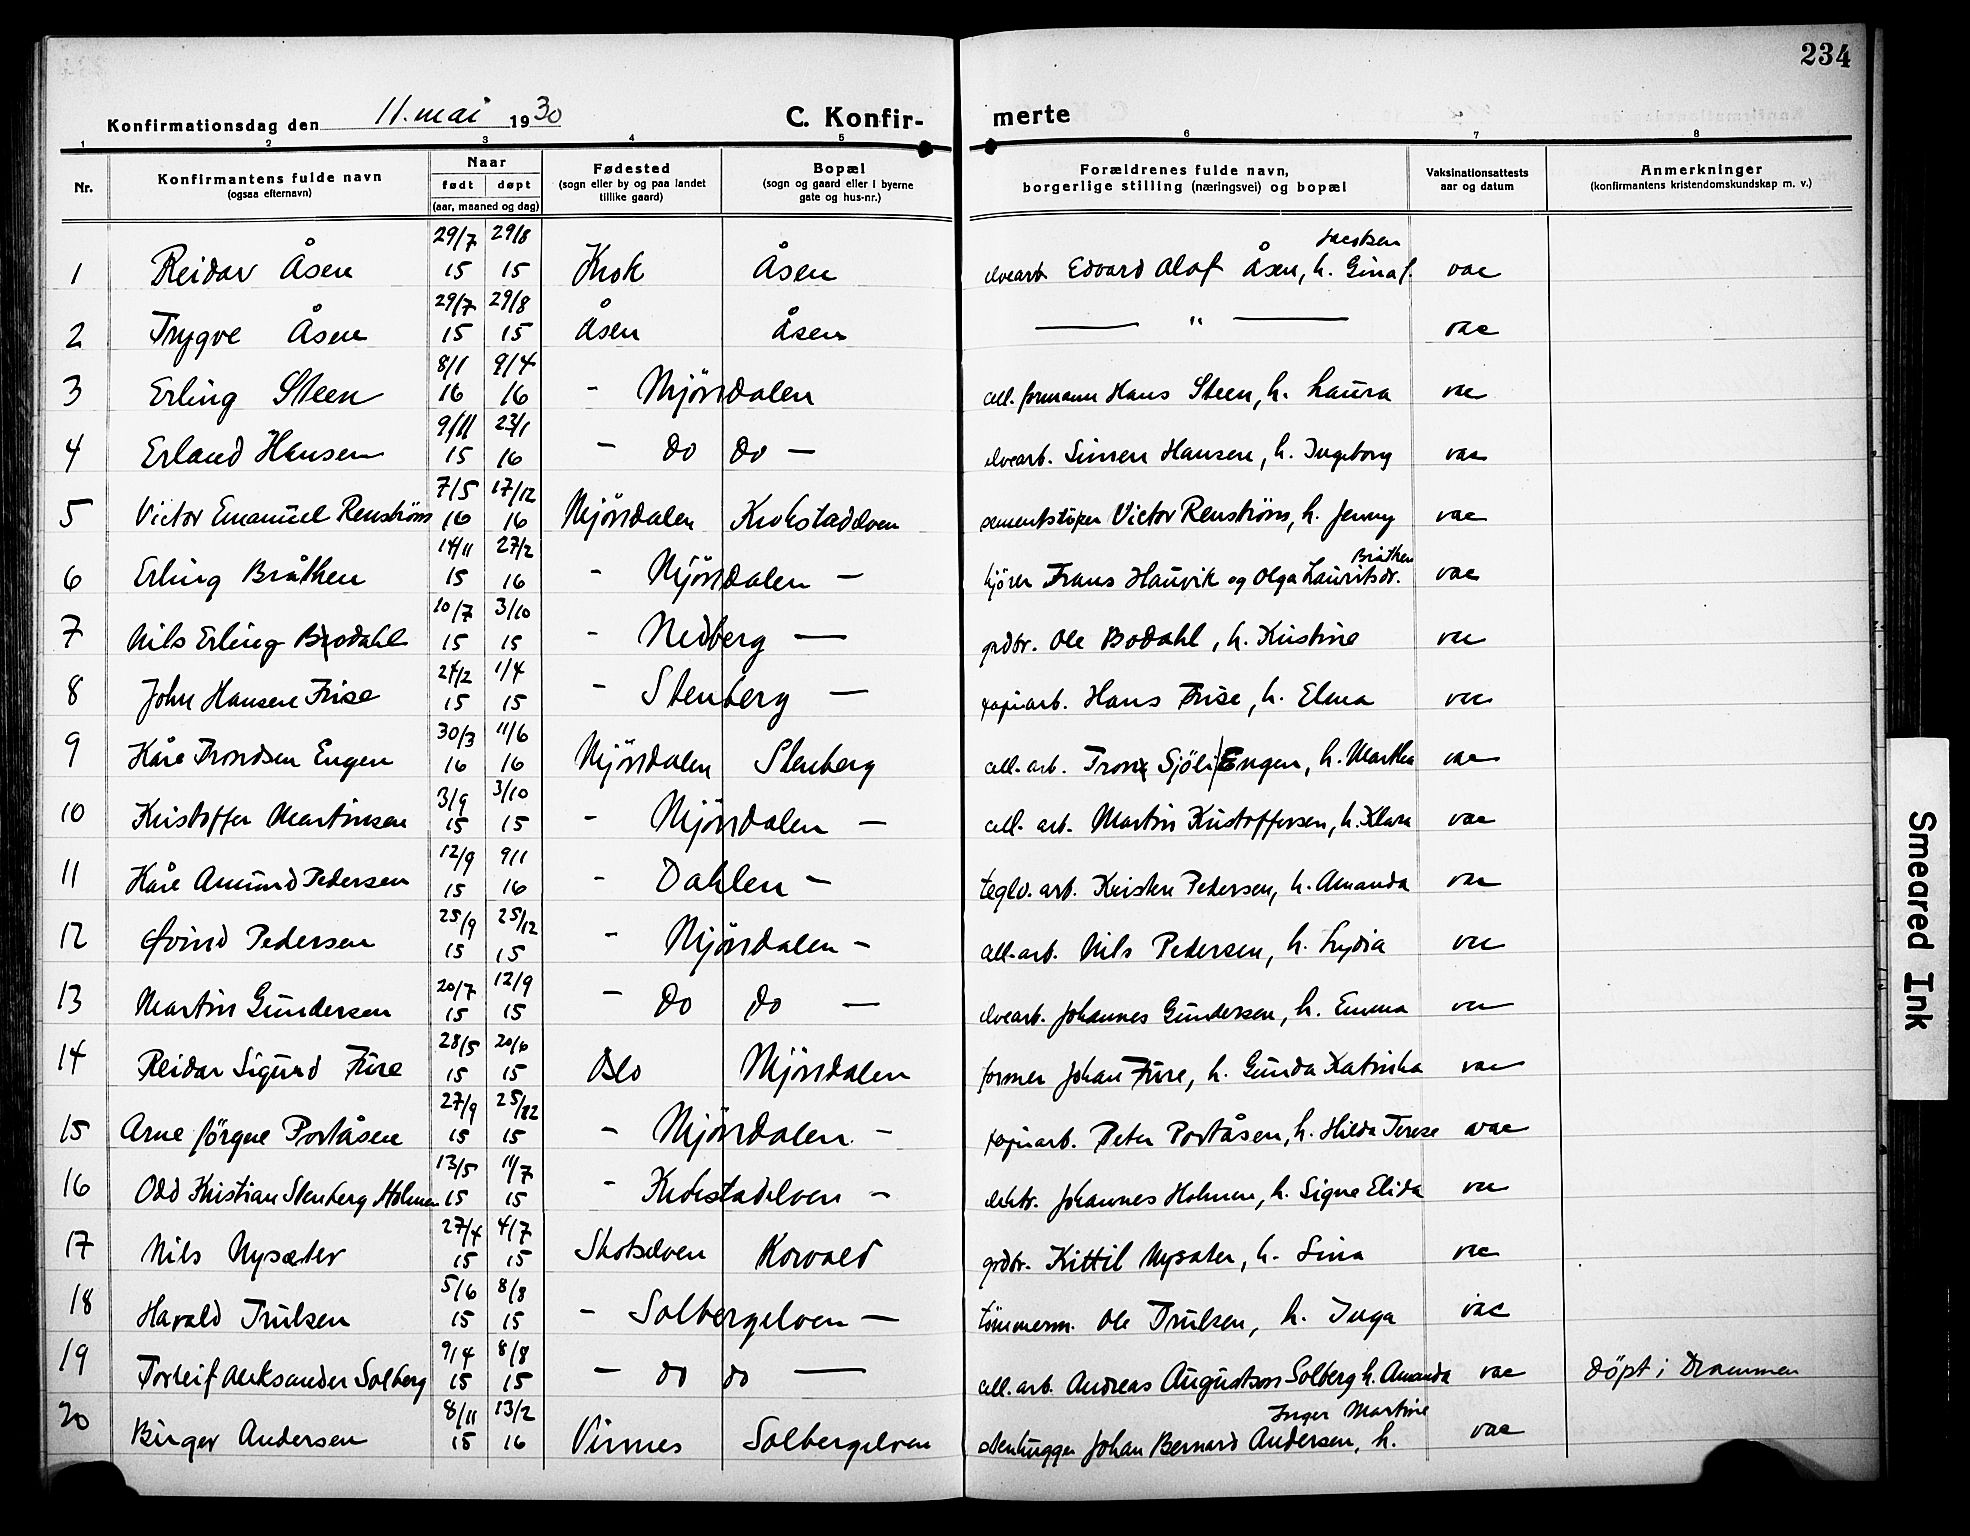 234
Konfirmationsdag den 11. mai 1930
C. Konfir-
merte
1 2 3 4 5 6 7 8
Nr.
Konfirmantens fulde navn
(ogsaa efternavn)
Naar
født døpt
(aar, maaned og dag)
Fødested
(sogn eller by og paa landet
tillike gaard)
Bopæl
(sogn og gaard eller i byerne
gate og hus-nr.)
Forældrenes fulde navn,
borgerlige stilling (næringsvei) og bopæl
Vaksinationsattests
aar og datum
Anmerkninger
(konfirmantens kristendomskundskap m. v.)
29/7 29/8 Jacobsen
1 Reidar Åsen 15 15 Krok Åsen elvearb. Edvard Olaf Åsen, h. Gina f. vac
29/7 29/8
2 Trygve Åsen 15 15 Åsen Åsen — " — vac
8/1 9/4
3 Erling Steen 16 16 - Mjöndalen cell. formann Hans Steen, h. Laura vac
9/11 23/1
4 Erland Hansen 15 16 - do do - elvearb. Simen Hansen, h. Ingeborg vac
7/5 17/12
5 Victor Emanuel Renström 16 16 Mjöndalen Krokstadelven sementstöper Victor Renström, h. Jenny vac
14/11 27/2 Bråthen
6 Erling Bråthen 15 16 - Mjöndalen - kjörer Frans Hauvik og Olga Lauritsdr. vac
10/7 3/10
7 Nils Erling Bodahl 15 15 - Nedberg — grdbr. Ole Bodahl, h. Kristine vac
24/2 1/4
8 John Hansen Frise 15 15 - Stenberg — papirarb. Hans Frise, h. Elena vac
30/3 11/6
9 Kåre Trondsen Engen 16 16 Mjöndalen Stenberg cell. arb. Trond Sjöli Engen, h. Martha vac
3/9 3/10
10 Kristoffer Martinsen 15 15 - Mjöndalen - cell. arb. Martin Kristoffersen, h. Klara vac
12/9 9/1
11 Kåre Amund Pedersen 15 16 - Dahlen - teglv. arb. Kristen Pedersen, h. Amanda vac
25/9 25/12
12 Øvind Pedersen 15 15 - Mjöndalen - cell-arb. Nils Pedersen, h. Lydia vac
20/7 12/9
13 Martin Gundersen 15 15 - do do — elvearb. Johannes Gundersen, h. Emma vac
28/5 20/6
14 Reidar Sigurd Fure 15 15 Oslo Mjöndalen former Johan Fure, h. Gunda Katinka vac
27/9 25/12
15 Arne Jörgne Portåsen 15 15 - Mjöndalen - papirarb. Peter Portåsen, h. Hilda Terese vac
13/5 11/7
16 Odd Kristian Stenberg Holmen 15 15 - Krokstadelven - elektr. Johannes Holmen, h. Signe Elida vac
27/4 4/7
17 Nils Nysæter 15 15 Skotselven Korvald grdbr. Kittil Nysæter, h. Lina vac
5/6 8/8
18 Harald Trulsen 15 15 - Solbergelven — tömmerm. Ole Trulsen, h. Inga vac
9/4 8/8
19 Torleif Aleksander Solberg 15 15 - do do — cell. arb. Andreas Augustson Solberg h. Amanda vac döpt i Drammen
8/11 13/2 Inger Martine
20 Birger Andersen 15 16 Virnes Solbergelven stenhugger Johan Bernard Andersen, h. vac
Smeared Ink